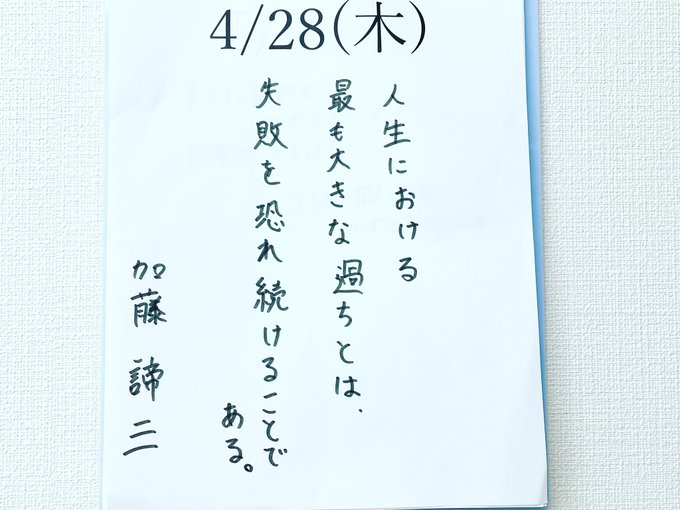 4/28(木)
人生における
最も大きな過ちとは、
失敗を恐れ続けることで
ある。
加藤諦三